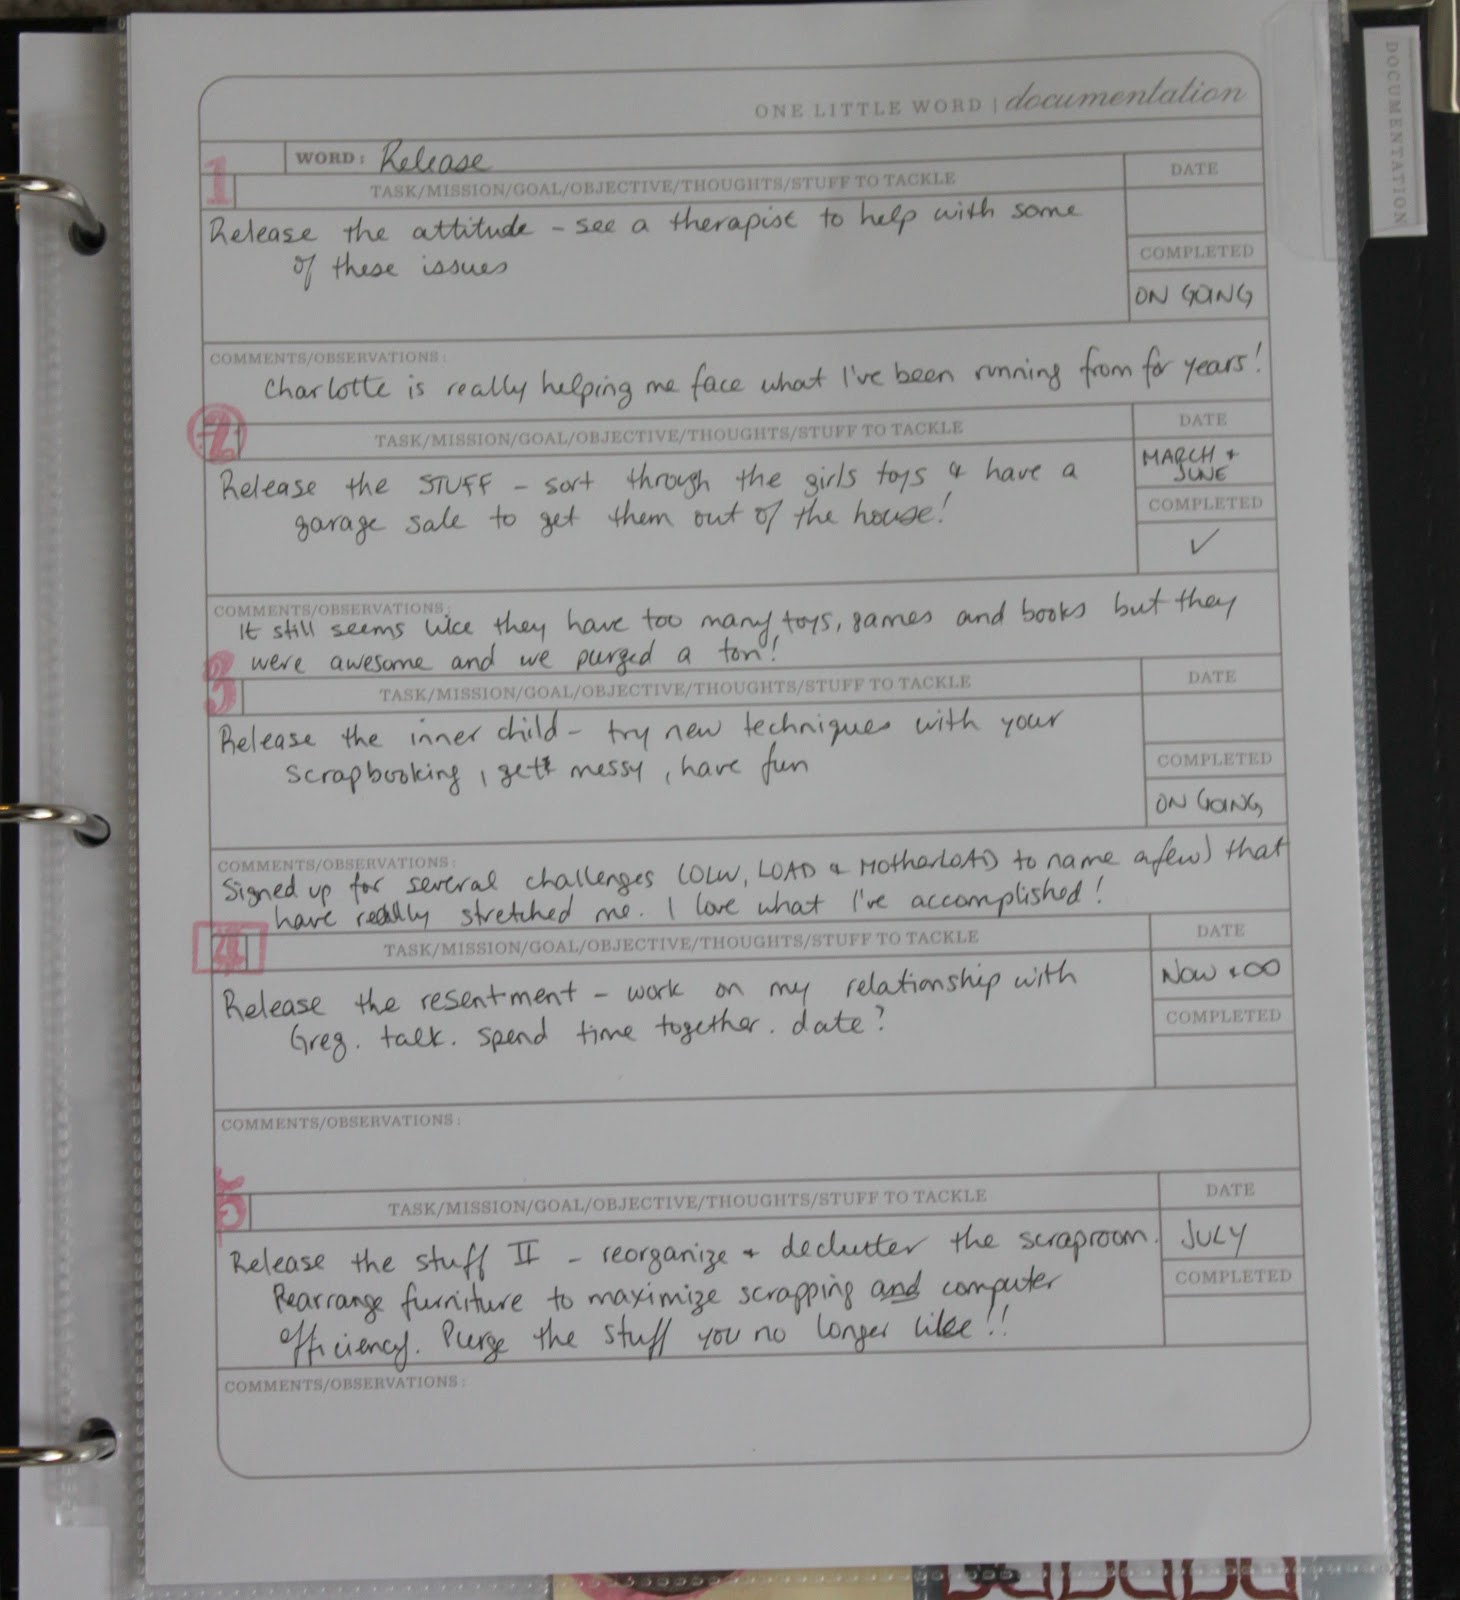 ONE LITTLE WORD | documentation
DOCUMENTATION
WORD: Release
1
TASK/MISSION/GOAL/OBJECTIVE/THOUGHTS/STUFF TO TACKLE
DATE
Release the attitude - see a therapist to help with some
of these issues
COMPLETED
ON GOING
COMMENTS/OBSERVATIONS:
Charlotte is really helping me face what I've been running from for years!
2
TASK/MISSION/GOAL/OBJECTIVE/THOUGHTS/STUFF TO TACKLE
DATE
MARCH +
JUNE
Release the STUFF - sort through the girls toys & have a
garage sale to get them out of the house!
COMPLETED
✓
COMMENTS/OBSERVATIONS:
It still seems like they have too many toys, games and books but they
were awesome and we purged a ton!
3
TASK/MISSION/GOAL/OBJECTIVE/THOUGHTS/STUFF TO TACKLE
DATE
Release the inner child - try new techniques with your
scrapbooking, get messy, have fun
COMPLETED
ON GOING
COMMENTS/OBSERVATIONS:
Signed up for several challenges (OLW, LOAD & MotherLOAD to name a few) that
have really stretched me. I love what I've accomplished!
4
TASK/MISSION/GOAL/OBJECTIVE/THOUGHTS/STUFF TO TACKLE
DATE
Now + ∞
Release the resentment - work on my relationship with
Greg. talk. spend time together. date?
COMPLETED
COMMENTS/OBSERVATIONS:
5
TASK/MISSION/GOAL/OBJECTIVE/THOUGHTS/STUFF TO TACKLE
DATE
JULY
Release the stuff II - reorganize + declutter the scraproom.
Rearrange furniture to maximize scrapping and computer
efficiency. Purge the stuff you no longer like!!
COMPLETED
COMMENTS/OBSERVATIONS: